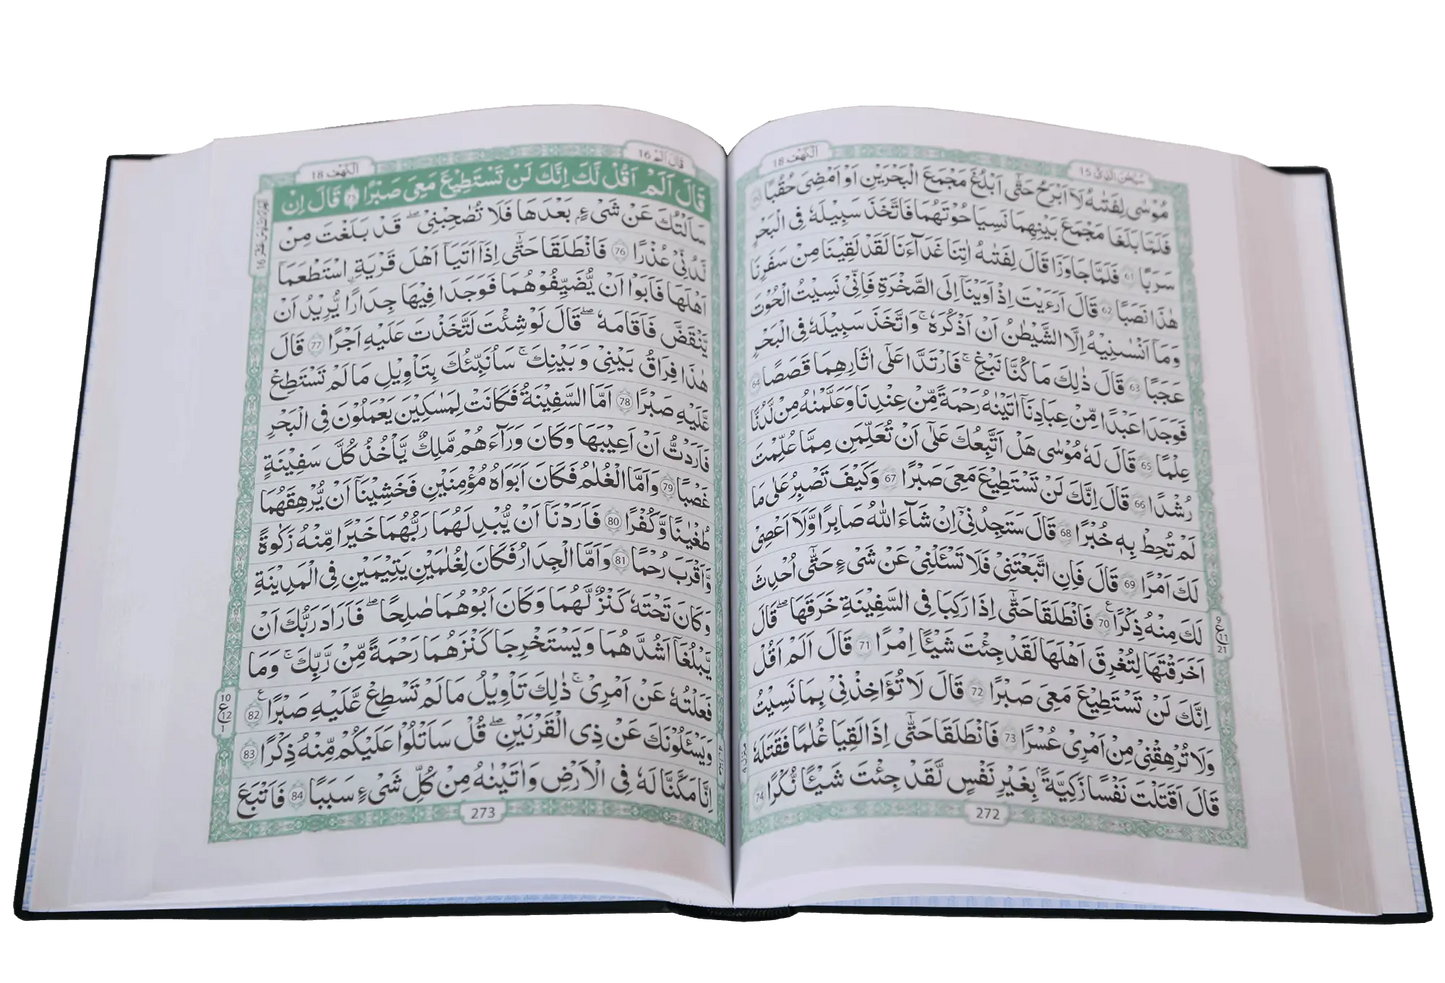 سُبْحٰنَ الَّذِيْٓ 15
الْكَهْف 18
مُوْسٰى لِفَتٰىهُ لَآ اَبْرَحُ حَتّٰٓى اَبْلُغَ مَجْمَعَ الْبَحْرَيْنِ اَوْ اَمْضِيَ حُقُبًا 60
فَلَمَّا بَلَغَا مَجْمَعَ بَيْنِهِمَا نَسِيَا حُوْتَهُمَا فَاتَّخَذَ سَبِيْلَهٗ فِى الْبَحْرِ
سَرَبًا 61 فَلَمَّا جَاوَزَا قَالَ لِفَتٰىهُ اٰتِنَا غَدَآءَنَا لَقَدْ لَقِيْنَا مِنْ سَفَرِنَا
هٰذَا نَصَبًا 62 قَالَ اَرَءَيْتَ اِذْ اَوَيْنَآ اِلَى الصَّخْرَةِ فَاِنِّيْ نَسِيْتُ الْحُوْتَ
وَمَآ اَنْسٰىنِيْهُ اِلَّا الشَّيْطٰنُ اَنْ اَذْكُرَهٗ ۚ وَاتَّخَذَ سَبِيْلَهٗ فِى الْبَحْرِ
عَجَبًا 63 قَالَ ذٰلِكَ مَا كُنَّا نَبْغِ ۖ فَارْتَدَّا عَلٰٓى اٰثَارِهِمَا قَصَصًا 64
فَوَجَدَا عَبْدًا مِّنْ عِبَادِنَآ اٰتَيْنٰهُ رَحْمَةً مِّنْ عِنْدِنَا وَعَلَّمْنٰهُ مِنْ لَّدُنَّا
عِلْمًا 65 قَالَ لَهٗ مُوْسٰى هَلْ اَتَّبِعُكَ عَلٰٓى اَنْ تُعَلِّمَنِ مِمَّا عُلِّمْتَ
رُشْدًا 66 قَالَ اِنَّكَ لَنْ تَسْتَطِيْعَ مَعِيَ صَبْرًا 67 وَكَيْفَ تَصْبِرُ عَلٰى مَا
لَمْ تُحِطْ بِهٖ خُبْرًا 68 قَالَ سَتَجِدُنِيْٓ اِنْ شَآءَ اللّٰهُ صَابِرًا وَّلَآ اَعْصِيْ
لَكَ اَمْرًا 69 قَالَ فَاِنِ اتَّبَعْتَنِيْ فَلَا تَسْـَٔلْنِيْ عَنْ شَيْءٍ حَتّٰٓى اُحْدِثَ
لَكَ مِنْهُ ذِكْرًا 70 فَانْطَلَقَا حَتّٰٓى اِذَا رَكِبَا فِى السَّفِيْنَةِ خَرَقَهَا ۖ قَالَ
اَخَرَقْتَهَا لِتُغْرِقَ اَهْلَهَا لَقَدْ جِئْتَ شَيْـًٔا اِمْرًا 71 قَالَ اَلَمْ اَقُلْ
اِنَّكَ لَنْ تَسْتَطِيْعَ مَعِيَ صَبْرًا 72 قَالَ لَا تُؤَاخِذْنِيْ بِمَا نَسِيْتُ
وَلَا تُرْهِقْنِيْ مِنْ اَمْرِيْ عُسْرًا 73 فَانْطَلَقَا حَتّٰٓى اِذَا لَقِيَا غُلٰمًا فَقَتَلَهٗ
قَالَ اَقَتَلْتَ نَفْسًا زَكِيَّةً بِغَيْرِ نَفْسٍ لَّقَدْ جِئْتَ شَيْـًٔا نُّكْرًا 74
9
ع
11
21
272
قَالَ اَلَمْ 16
الْكَهْف 18
قَالَ اَلَمْ اَقُلْ لَّكَ اِنَّكَ لَنْ تَسْتَطِيْعَ مَعِيَ صَبْرًا 75 قَالَ اِنْ
سَاَلْتُكَ عَنْ شَيْءٍ بَعْدَهَا فَلَا تُصٰحِبْنِيْ ۖ قَدْ بَلَغْتَ مِنْ
لَّدُنِّيْ عُذْرًا 76 فَانْطَلَقَا حَتّٰٓى اِذَآ اَتَيَآ اَهْلَ قَرْيَةِ ۨاسْتَطْعَمَآ
اَهْلَهَا فَاَبَوْا اَنْ يُّضَيِّفُوْهُمَا فَوَجَدَا فِيْهَا جِدَارًا يُّرِيْدُ اَنْ
يَّنْقَضَّ فَاَقَامَهٗ ۖ قَالَ لَوْ شِئْتَ لَتَّخَذْتَ عَلَيْهِ اَجْرًا 77 قَالَ
هٰذَا فِرَاقُ بَيْنِيْ وَبَيْنِكَ ۚ سَاُنَبِّئُكَ بِتَاْوِيْلِ مَا لَمْ تَسْتَطِعْ
عَّلَيْهِ صَبْرًا 78 اَمَّا السَّفِيْنَةُ فَكَانَتْ لِمَسٰكِيْنَ يَعْمَلُوْنَ فِى الْبَحْرِ
فَاَرَدْتُّ اَنْ اَعِيْبَهَا وَكَانَ وَرَآءَهُمْ مَّلِكٌ يَّاْخُذُ كُلَّ سَفِيْنَةٍ
غَصْبًا 79 وَاَمَّا الْغُلٰمُ فَكَانَ اَبَوٰهُ مُؤْمِنَيْنِ فَخَشِيْنَآ اَنْ يُّرْهِقَهُمَا
طُغْيٰنًا وَّكُفْرًا 80 فَاَرَدْنَآ اَنْ يُّبْدِلَهُمَا رَبُّهُمَا خَيْرًا مِّنْهُ زَكٰوةً
وَّاَقْرَبَ رُحْمًا 81 وَاَمَّا الْجِدَارُ فَكَانَ لِغُلٰمَيْنِ يَتِيْمَيْنِ فِى الْمَدِيْنَةِ
وَكَانَ تَحْتَهٗ كَنْزٌ لَّهُمَا وَكَانَ اَبُوْهُمَا صٰلِحًا ۖ فَاَرَادَ رَبُّكَ اَنْ
يَّبْلُغَآ اَشُدَّهُمَا وَيَسْتَخْرِجَا كَنْزَهُمَا رَحْمَةً مِّنْ رَّبِّكَ ۚ وَمَا
فَعَلْتُهٗ عَنْ اَمْرِيْ ۚ ذٰلِكَ تَاْوِيْلُ مَا لَمْ تَسْطِعْ عَّلَيْهِ صَبْرًا 82
وَيَسْـَٔلُوْنَكَ عَنْ ذِى الْقَرْنَيْنِ ۖ قُلْ سَاَتْلُوْا عَلَيْكُمْ مِّنْهُ ذِكْرًا 83
اِنَّا مَكَّنَّا لَهٗ فِى الْاَرْضِ وَاٰتَيْنٰهُ مِنْ كُلِّ شَيْءٍ سَبَبًا 84 فَاَتْبَعَ
10
ع
12
1
273